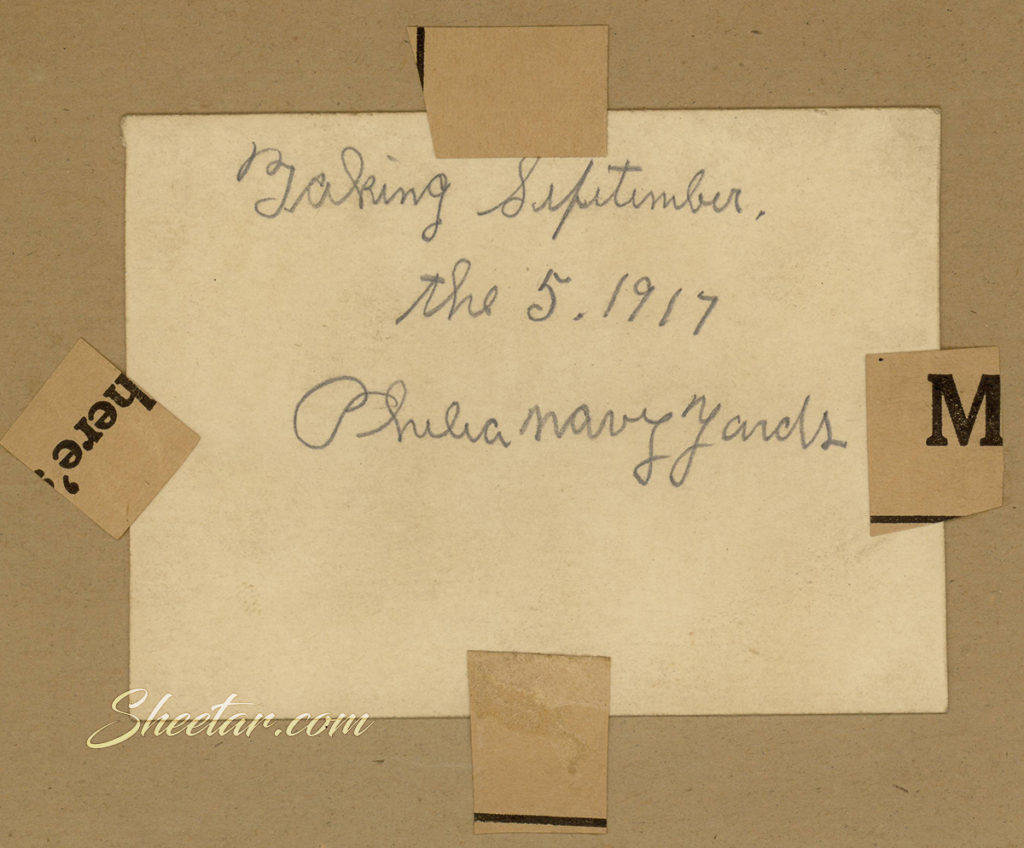 Taking September.
the 5. 1917
Philia Navy Yards
here's
M
Sheetar.com